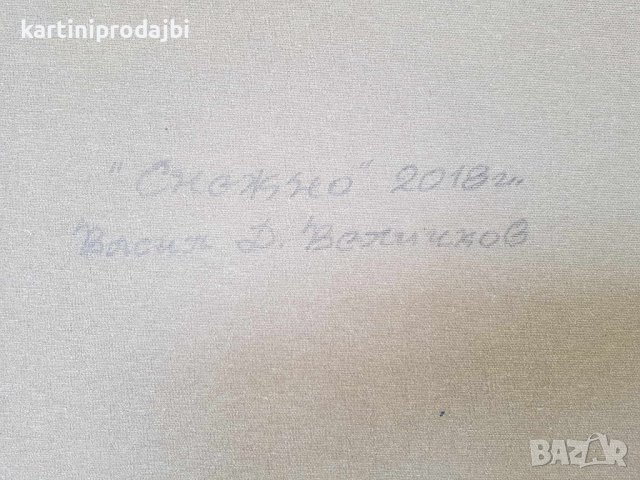 kartiniprodajbi
"Снежно" 2018г.
Васил Д. Величков
BAZAR